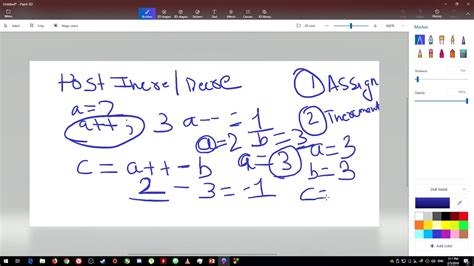 Untitled* - Paint 3D
Menu
Brushes
2D shapes
3D shapes
Stickers
Text
Effects
Canvas
3D library
Marker
Post Incre/Decre
① Assign
a=2
a++;
3 a-- = 1
② Increment
a=2 b=3
c= a++ - b
a=3
a=3
b=3
2 - 3 = -1
c=
Thickness
Opacity
Dull metal